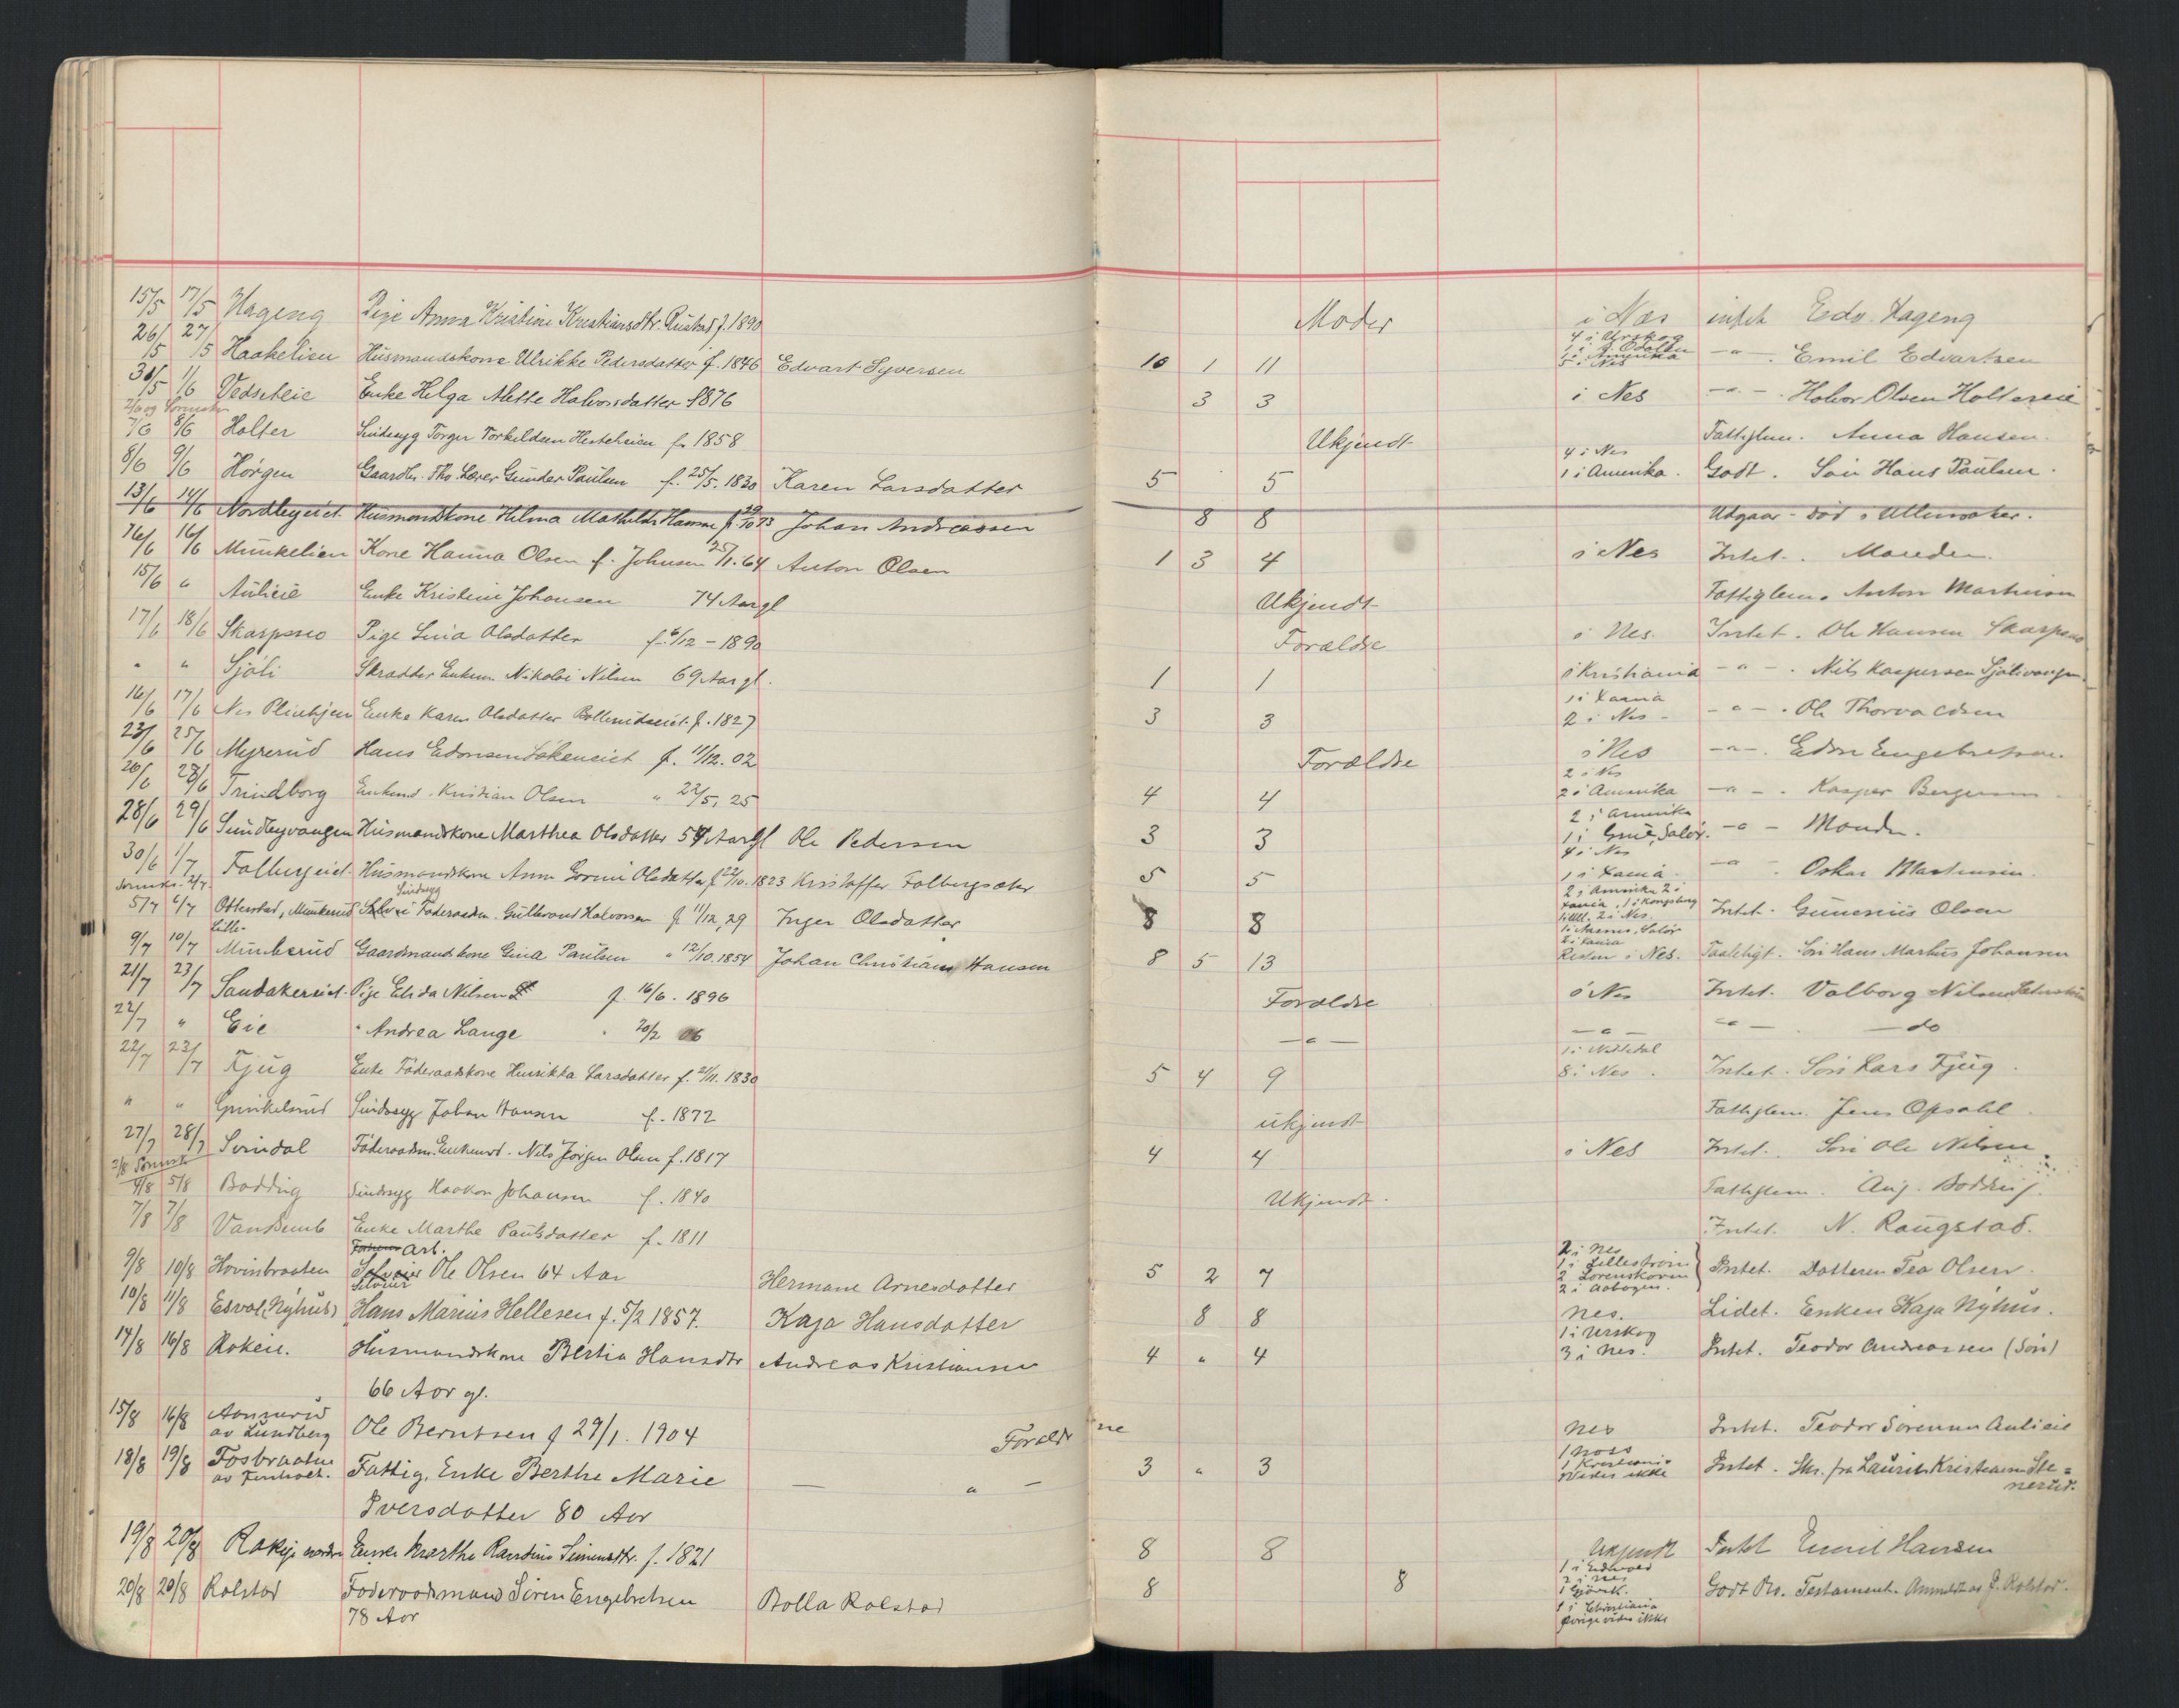 15/5 17/5 Hageng Pige Anna Kristine Kristiansdtr. Rustad f. 1890 Moder i Næs intet Edv. Hageng
4 i Urskog
26/5 27/5 Haakelien Husmandskone Ulrikke Pedersdatter f. 1846 Edvart Syversen 10 1 11 1 i S. Odalen 1 i Amerika 5 i Nes -"- Emil Edvartsen
30/5 1/6 Vedscheie Enke Helga Mette Halvorsdatter 1876 3 3 i Nes -"- Halvor Olsen Holtereie
7/6 8/6 Holter Sindsyg Torger Torkildsen Hesteheien f. 1858 Ukjendt Fattiglem. Anna Hansen.
8/6 9/6 Horgen Gaardbr. Fhv. Lærer Gunder Paulsen f. 25/5. 1830 Karen Larsdatter 5 5 4 i Nes 1 i Amerika. Godt. Søn Hans Paulsen.
13/6 14/6 Husmandskone Hilma Mathilde Johan Andreassen 8 8 Udgaar - død i Ullensaker.
16/6 16/6 Munkelien Kone Hanna Olsen f. Johnsen 25/1. 64 Anton Olsen 1 3 4 i Nes Intet. Manden.
15/6 " Aulieie Enke Kristine Johansen 74 Aar gl Ukjendt Fattiglem. Anton Martinsen
17/6 18/6 Skarpsno Pige Lina Olsdatter f. 6/12 - 1890 Forældre i Nes. Intet. Ole Hansen Skarpsno
" " Sjøli Skrædder Enkem. Nikolai Nilsen 69 Aar gl. 1 1 i Kristiania -"-. Nils Kaspersen Sjølivangen.
16/6 17/6 Nes Pleiehjem Enke Karen Olsdatter f. 1827 3 3 1 i Xania 2 i Nes - -"-. Ole Thorvaldsen
23/6 25/6 Myrerud Hans Edvinsen f. 11/12. 02 Forældre i Nes -"-. Edvin Engebretsen.
26/6 28/6 Trindborg Enkemd. Kristian Olsen " 22/5, 25 4 4 2 i Nes 2 i Amerika -"-. Kasper Bergersen
28/6 29/6 Sundbyvangen Husmandskone Marthea Olsdatter 54 Aar gl Ole Pedersen 3 3 2 i Amerika 1 i Grue, Solør. -"- Manden.
30/6 1/7 Folbergeiet Husmandskone Anne Olsdatter f 22/10. 1823 Kristoffer Folbergsæter 5 5 4 i Nes 1 i Xania. -"- Oskar Martinsen.
5/7 6/7 Otterstad, Sindsyg Føderaadsm. Gulbrand Halvorsen f. 11/12, 29 Inger Olsdatter 8 8 2 i Amerika 2 i Xania, 1 i Kongsberg 2 i Nes. Intet. Gunerius Olsen
Lille-
9/7 10/7 Munkerud Gaardmandskone Gina Paulsen " 12/10. 1854 Johan Christian Hansen 8 5 13 2 i Xania Resten i Nes. Taaleligt. Søn Hans Markus Johansen
21/7 23/7 Sandakereiet. Pige Elida Nilsen f. 16/6. 1896 Forældre i Nes Intet. Valborg Nilsen
22/7 " Eie " Andrea Lange " 20/2 06 -"- -"- -"- - do
22/7 23/7 Fjug Enke Føderaadskone Hendrikka Larsdatter f. 21/11. 1830 5 4 9 1 i Nittedal 8 i Nes. Intet. Søn Lars Fjug.
" " Gunkelsrud Sindssyg Johan Hansen f. 1872 ukjendt Fattiglem. Jens Opsahl
27/7 28/7 Svindal Føderaadsm. Enkemd. Nils Jørgen Olsen f. 1817 4 4 i Nes Intet. Søn Ole Nilsen
4/8 5/8 Bødding Sindssyg Haakon Johansen f. 1840 Ukjendt. Fattiglem. Aug. Bødding.
7/8 7/8 Vansemb Enke Marthe Paulsdatter f. 1811 Intet. N. Raugstad.
9/8 10/8 Hovinbraaten Arb. Ole Olsen 64 Aar Hermane Arnesdatter 5 2 7 2 i Nes 1 i Lillestrøm 2 Lørenskoven 2 i Aabogen. Intet. Datteren Tea Olsen.
10/8 11/8 Esval, Nyhus) Hans Marius Hellesen f. 5/2 1857. Kaja Hansdatter 8 8 Nes. Lidet. Enken Kaja Nyhus.
14/8 16/8 Rokeie. Husmandskone Bertia Hansdtr Andreas Kristiansen 4 " 4 1 i Urskog 3 i Nes. Intet. Teodor Andreassen (Søn)
66 Aar gl.
15/8 16/8 Aanerud av Lundberg Ole Berntsen f 29/1. 1904 Forældrene Nes Intet. Teodor Sørensen Aulieie
18/8 19/8 Fosbraaten Fattig. Enke Berthe Marie - " - 3 " 3 1 Kristiania Vides ikke Intet. Skr. fra Laurits Kristiansen Ste=
nerud.
Iversdatter 80 Aar
19/8 20/8 Rakeje nordre Enke Marthe Randine Simensdtr. f. 1821 8 8 Ukjendt Intet Emil Hansen
20/8 20/8 Rolstad Føderaadsmand Søren Engebretsen Bolla Rolstad 8 8 1 i Eidsvold 2 i Nes 1 Gjøvik. 1 i Christiania øvrige vides ikke Godt Bo. Testament. Anmeldt av J. Rolstad.
78 Aar